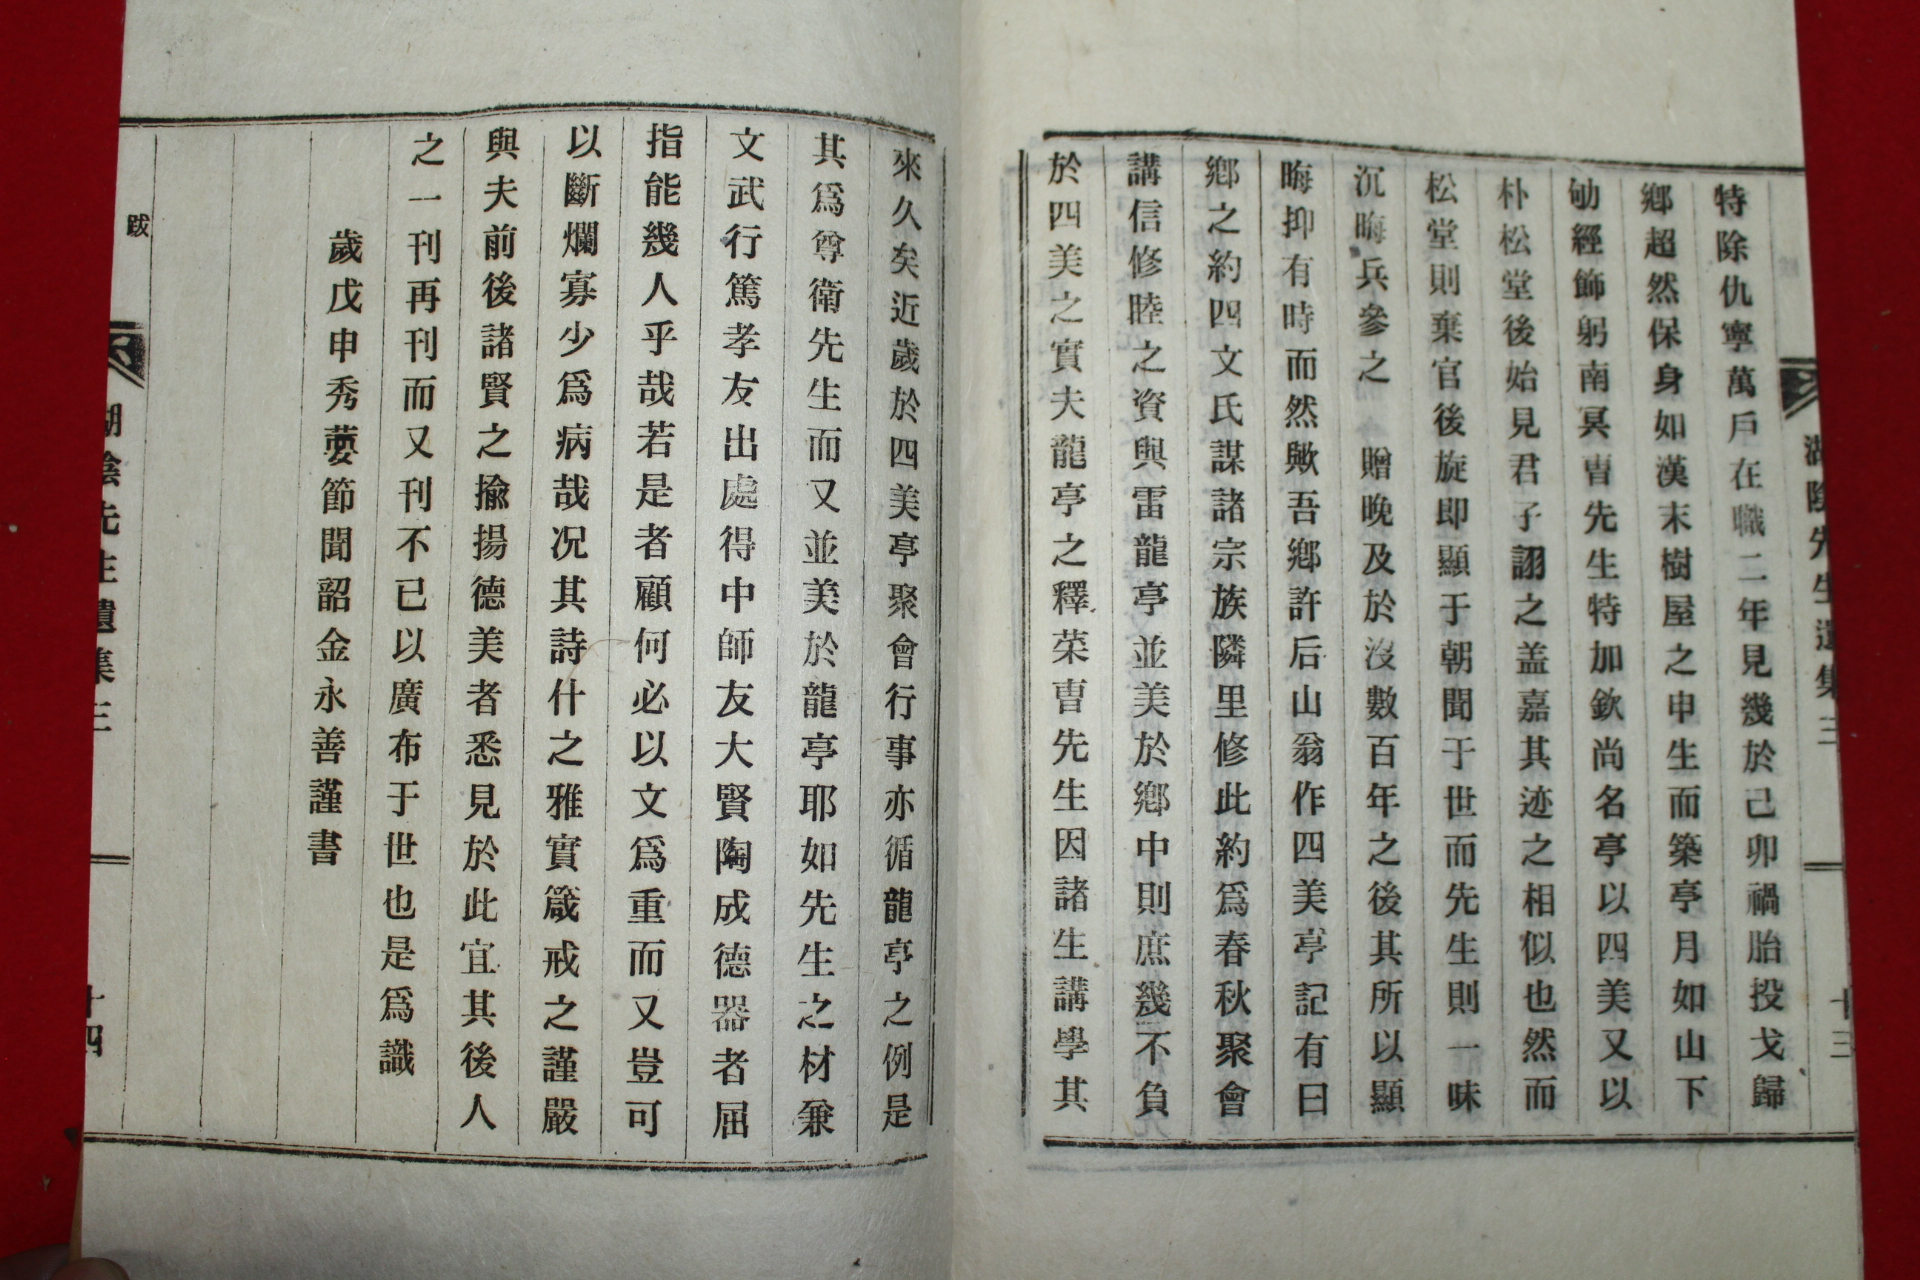 特除仇寧萬戶在職二年見幾於己卯禍胎投戈歸
鄕超然保身如漢末樹屋之申生而築亭月如山下
劬經飾躬南冥曺先生特加欽尚名亭以四美又以
朴松堂後始見君子詡之盖嘉其迹之相似也然而
松堂則棄官後旋即顯于朝聞于世而先生則一味
沉晦兵參之贈晚及於沒數百年之後其所以顯
晦抑有時而然歟吾鄕許后山翁作四美亭記有曰
鄕之約四文氏謀諸宗族隣里修此約爲春秋聚會
講信修睦之資與雷龍亭並美於鄕中則庶幾不負
於四美之實夫龍亭之釋菜曺先生因諸生講學其
湖陰先生遺集三
十三
來久矣近歲於四美亭聚會行事亦循龍亭之例是
其爲尊衛先生而又並美於龍亭耶如先生之材兼
文武行篤孝友出處得中師友大賢陶成德器者屈
指能幾人乎哉若是者顧何必以文爲重而又豈可
以斷爛寡少爲病哉况其詩什之雅實箴戒之謹嚴
與夫前後諸賢之揄揚德美者悉見於此宜其後人
之一刊再刊而又刊不已以廣布于世也是爲識
歲戊申秀葽節聞韶金永善謹書
跋
湖陰先生遺集三
十四